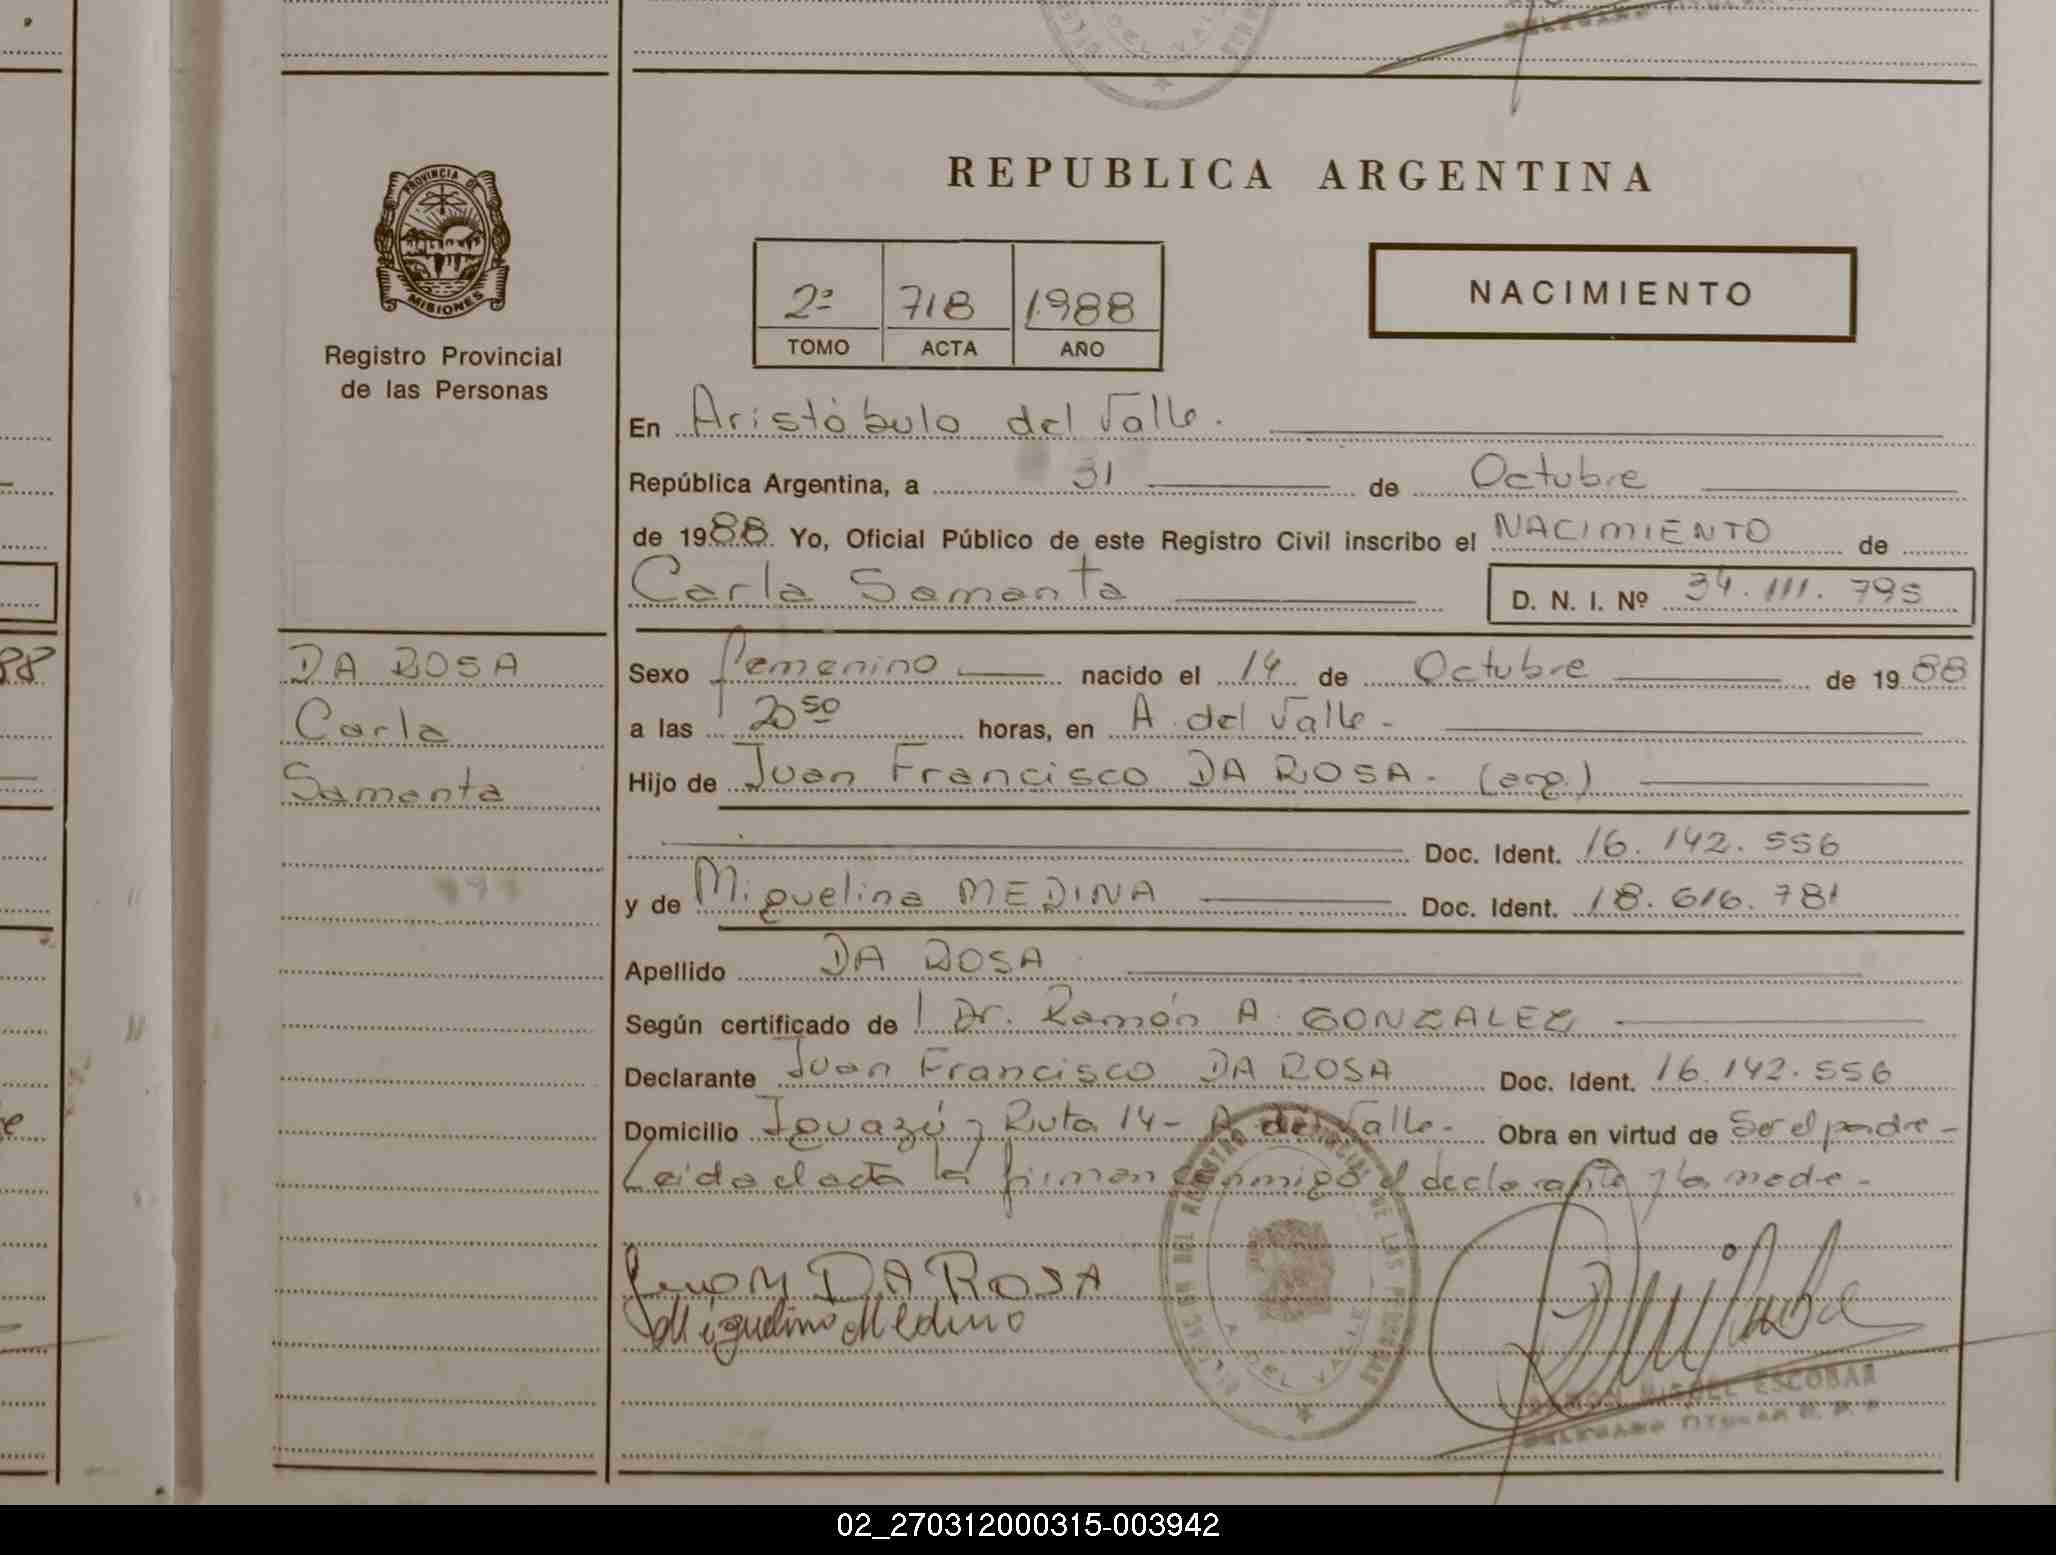 REPUBLICA ARGENTINA
PROVINCIA DE
MISIONES
Registro Provincial
de las Personas
2º 718 1.988
TOMO ACTA AÑO
NACIMIENTO
En Aristóbulo del Valle.
República Argentina, a 31 de Octubre
de 1988 Yo, Oficial Público de este Registro Civil inscribo el NACIMIENTO de
Carla Samanta D. N. I. Nº 34.111.795
DA ROSA
Carla
Samanta
Sexo femenino nacido el 14 de Octubre de 1988
a las 20 50 horas, en A. del Valle -
Hijo de Juan Francisco DA ROSA. (arg.)
Doc. Ident. 16.142.556
y de Miguelina MEDINA Doc. Ident. 18.616.781
Apellido DA ROSA
Según certificado de Dr. Ramón A. GONZALEZ
Declarante Juan Francisco DA ROSA Doc. Ident. 16.142.556
Domicilio Iguazú y Ruta 14 - A. del Valle - Obra en virtud de Ser el padre -
Leida el acta la firman conmigo el declarante y la madre -
DA ROSA
Miguelina Medina
A. DEL VALLE
RAMON MIGUEL ESCOBAR
DELEGADO TITULAR R. P. P.
88
02_270312000315-003942